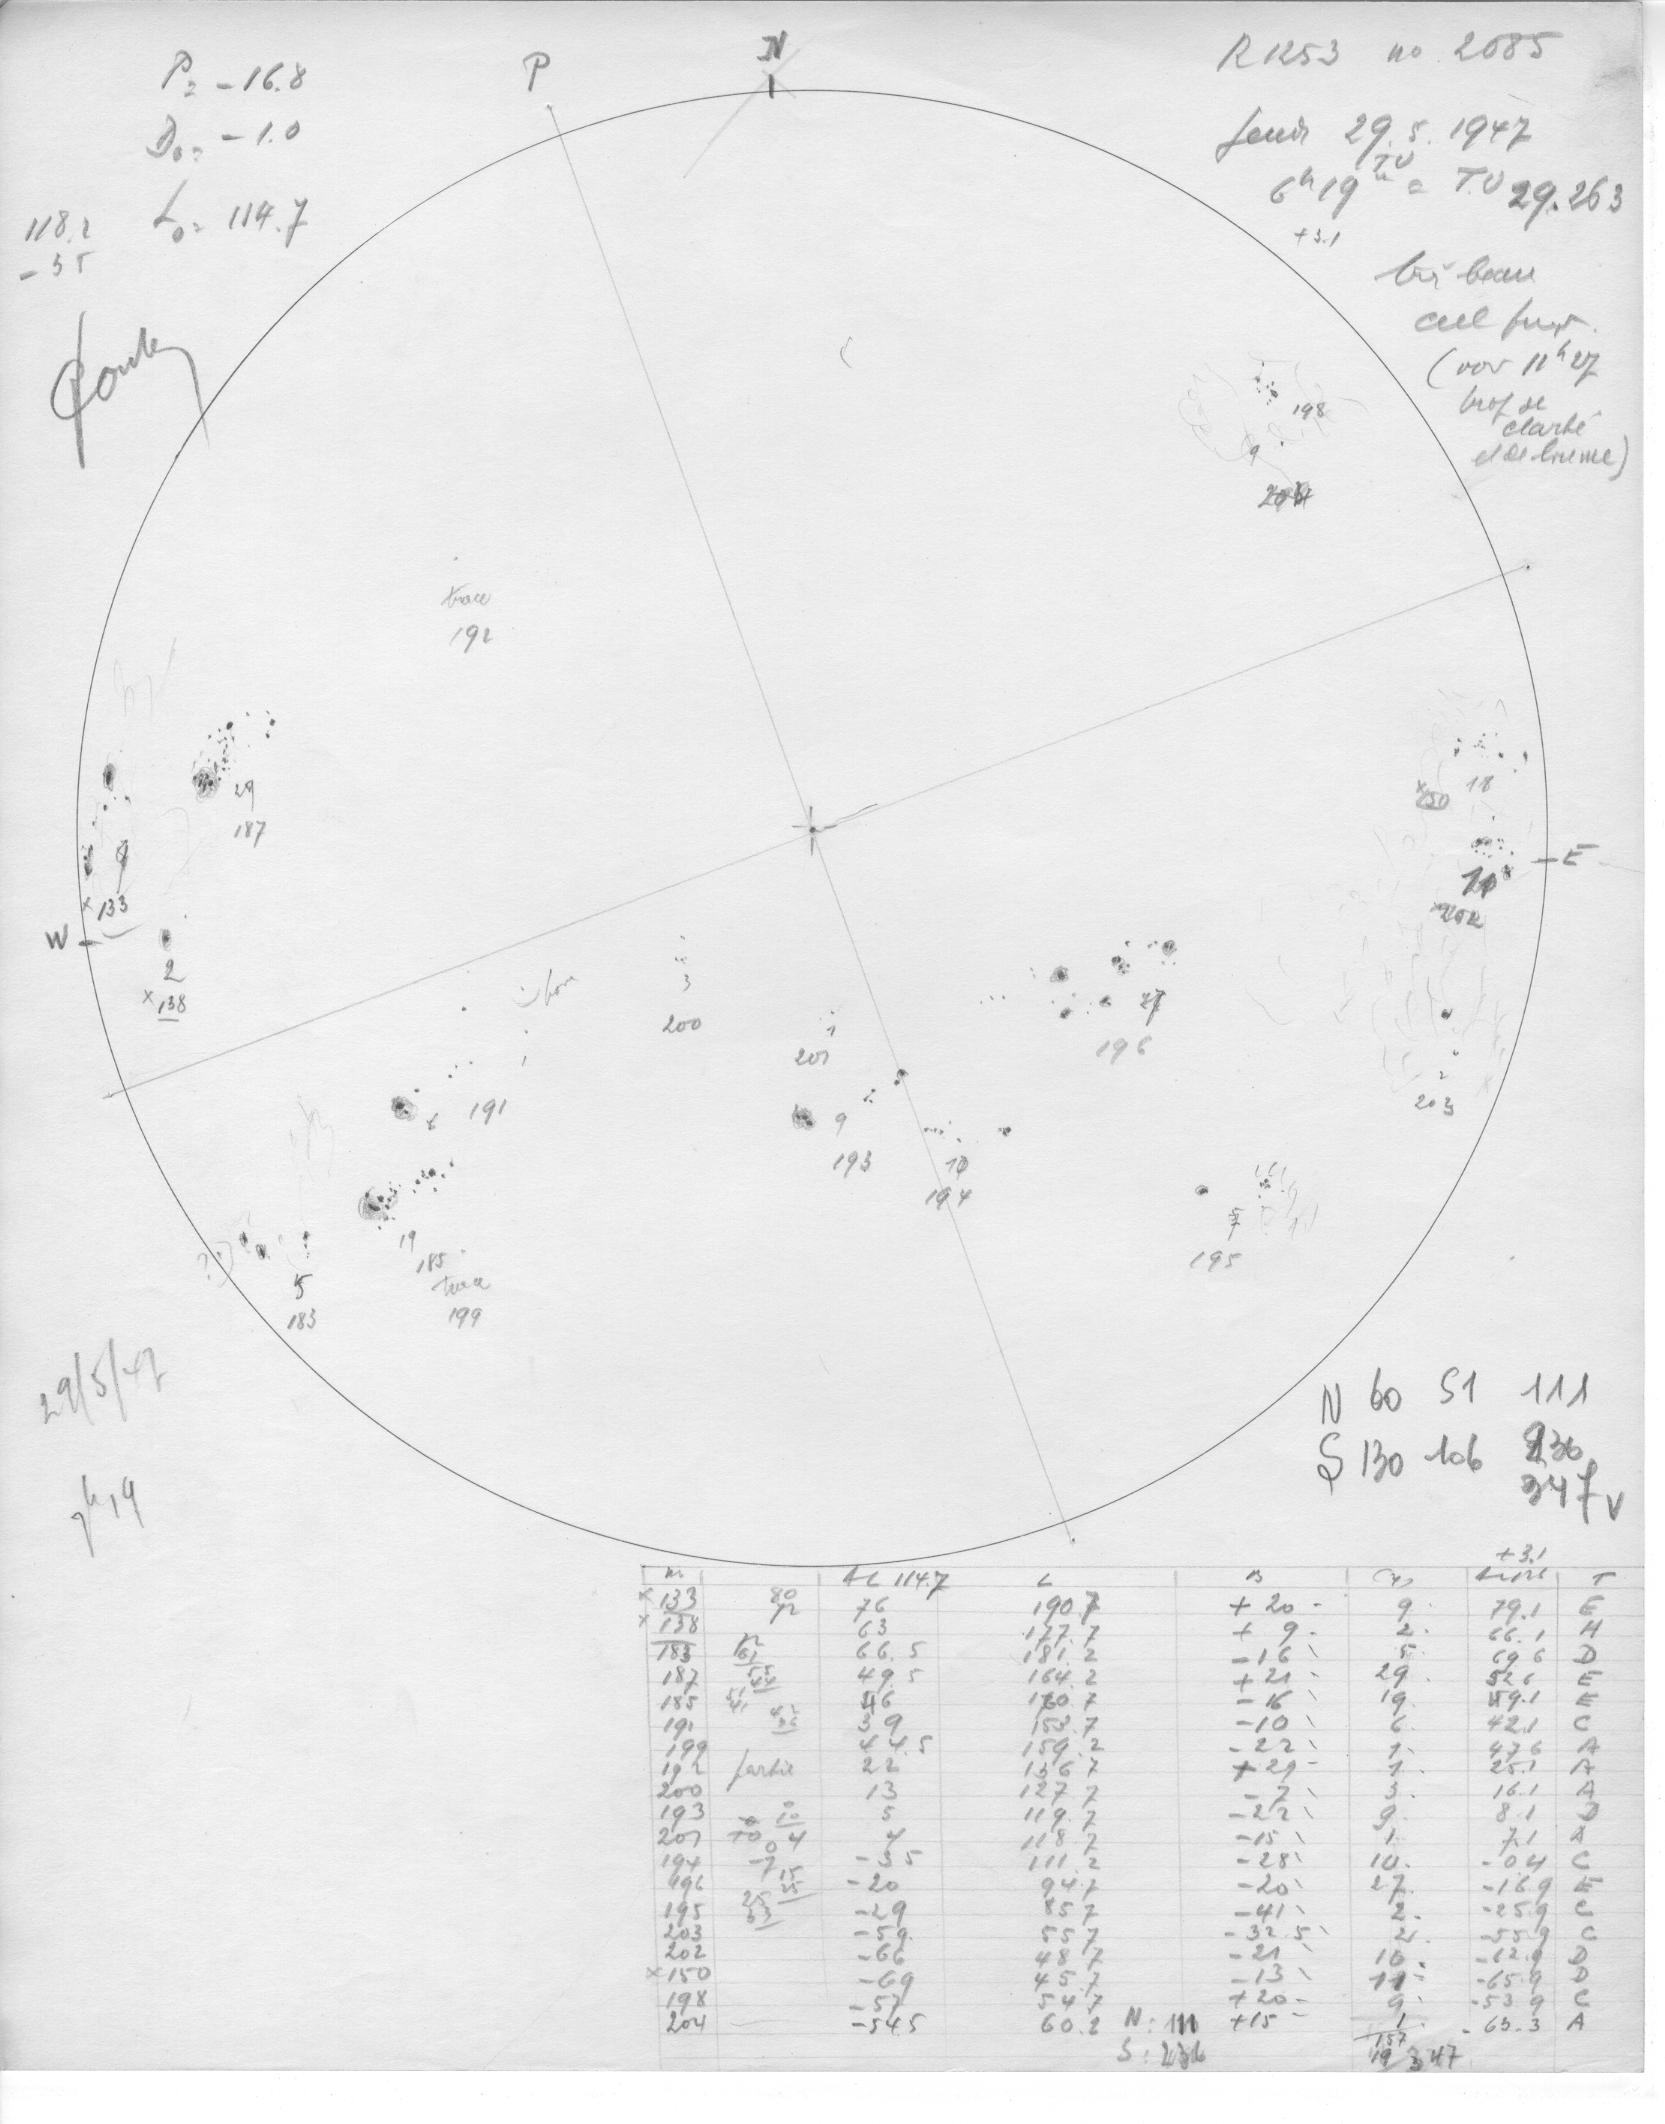 P = -16.8
B₀ = -1.0
L₀ = 114.7
118.2
-35
P
N
no 2085
29.5.1947
6h19 TU = T.U 29.263
+3.1
très beau
(voir 11h27
trop de
clarté
et de brume)
198
9
204
trace
192
29
187
133
W
2
x 138
18
x 150
E
202
3
200
201
1
27
196
6
191
9
193
10
194
2
203
195
19
185
trace
199
5
183
29/5/47
N 60 51 111
S 130 106 236
347 v
+3.1
L B T
x 133 80 72 76 190.7 +20 9 79.1 E
x 138 63 177.7 +9 2 66.1 H
183 66.5 181.2 -16 5 69.6 D
187 49.5 164.2 +21 29 52.6 E
185 46 160.7 -16 19 49.1 E
191 39 153.7 -10 6 42.1 C
199 44.5 159.2 -22 1 47.6 A
192 22 136.7 +29 1 25.1 A
200 13 127.7 -7 3 16.1 A
193 5 119.7 -22 9 8.1 D
201 4 118.7 -15 1 7.1 A
194 -3.5 111.2 -28 10 -0.4 C
196 -20 94.7 -20 27 -16.9 E
195 -29 85.7 -41 2 -25.9 C
203 -59 55.7 -32.5 2 -55.9 C
202 -66 48.7 -21 10 -62.9 D
x 150 -69 45.7 -13 11 -65.9 D
198 -57 54.7 +20 9 -53.9 C
204 -54.5 60.2 +15 1 A
N : 111
S : 236
157
19 347